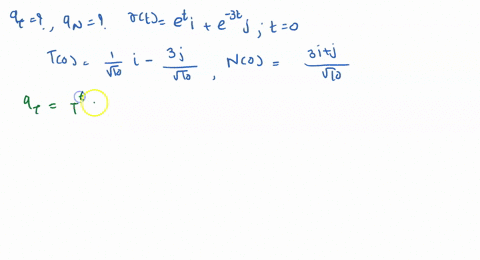 a_T = ?, a_N = ? r(t) = e^t i + e^{-3t} j ; t = 0
T(0) = 1/√10 i − 3j/√10 , N(0) = 3i+j/√10
a_T = T^t ·